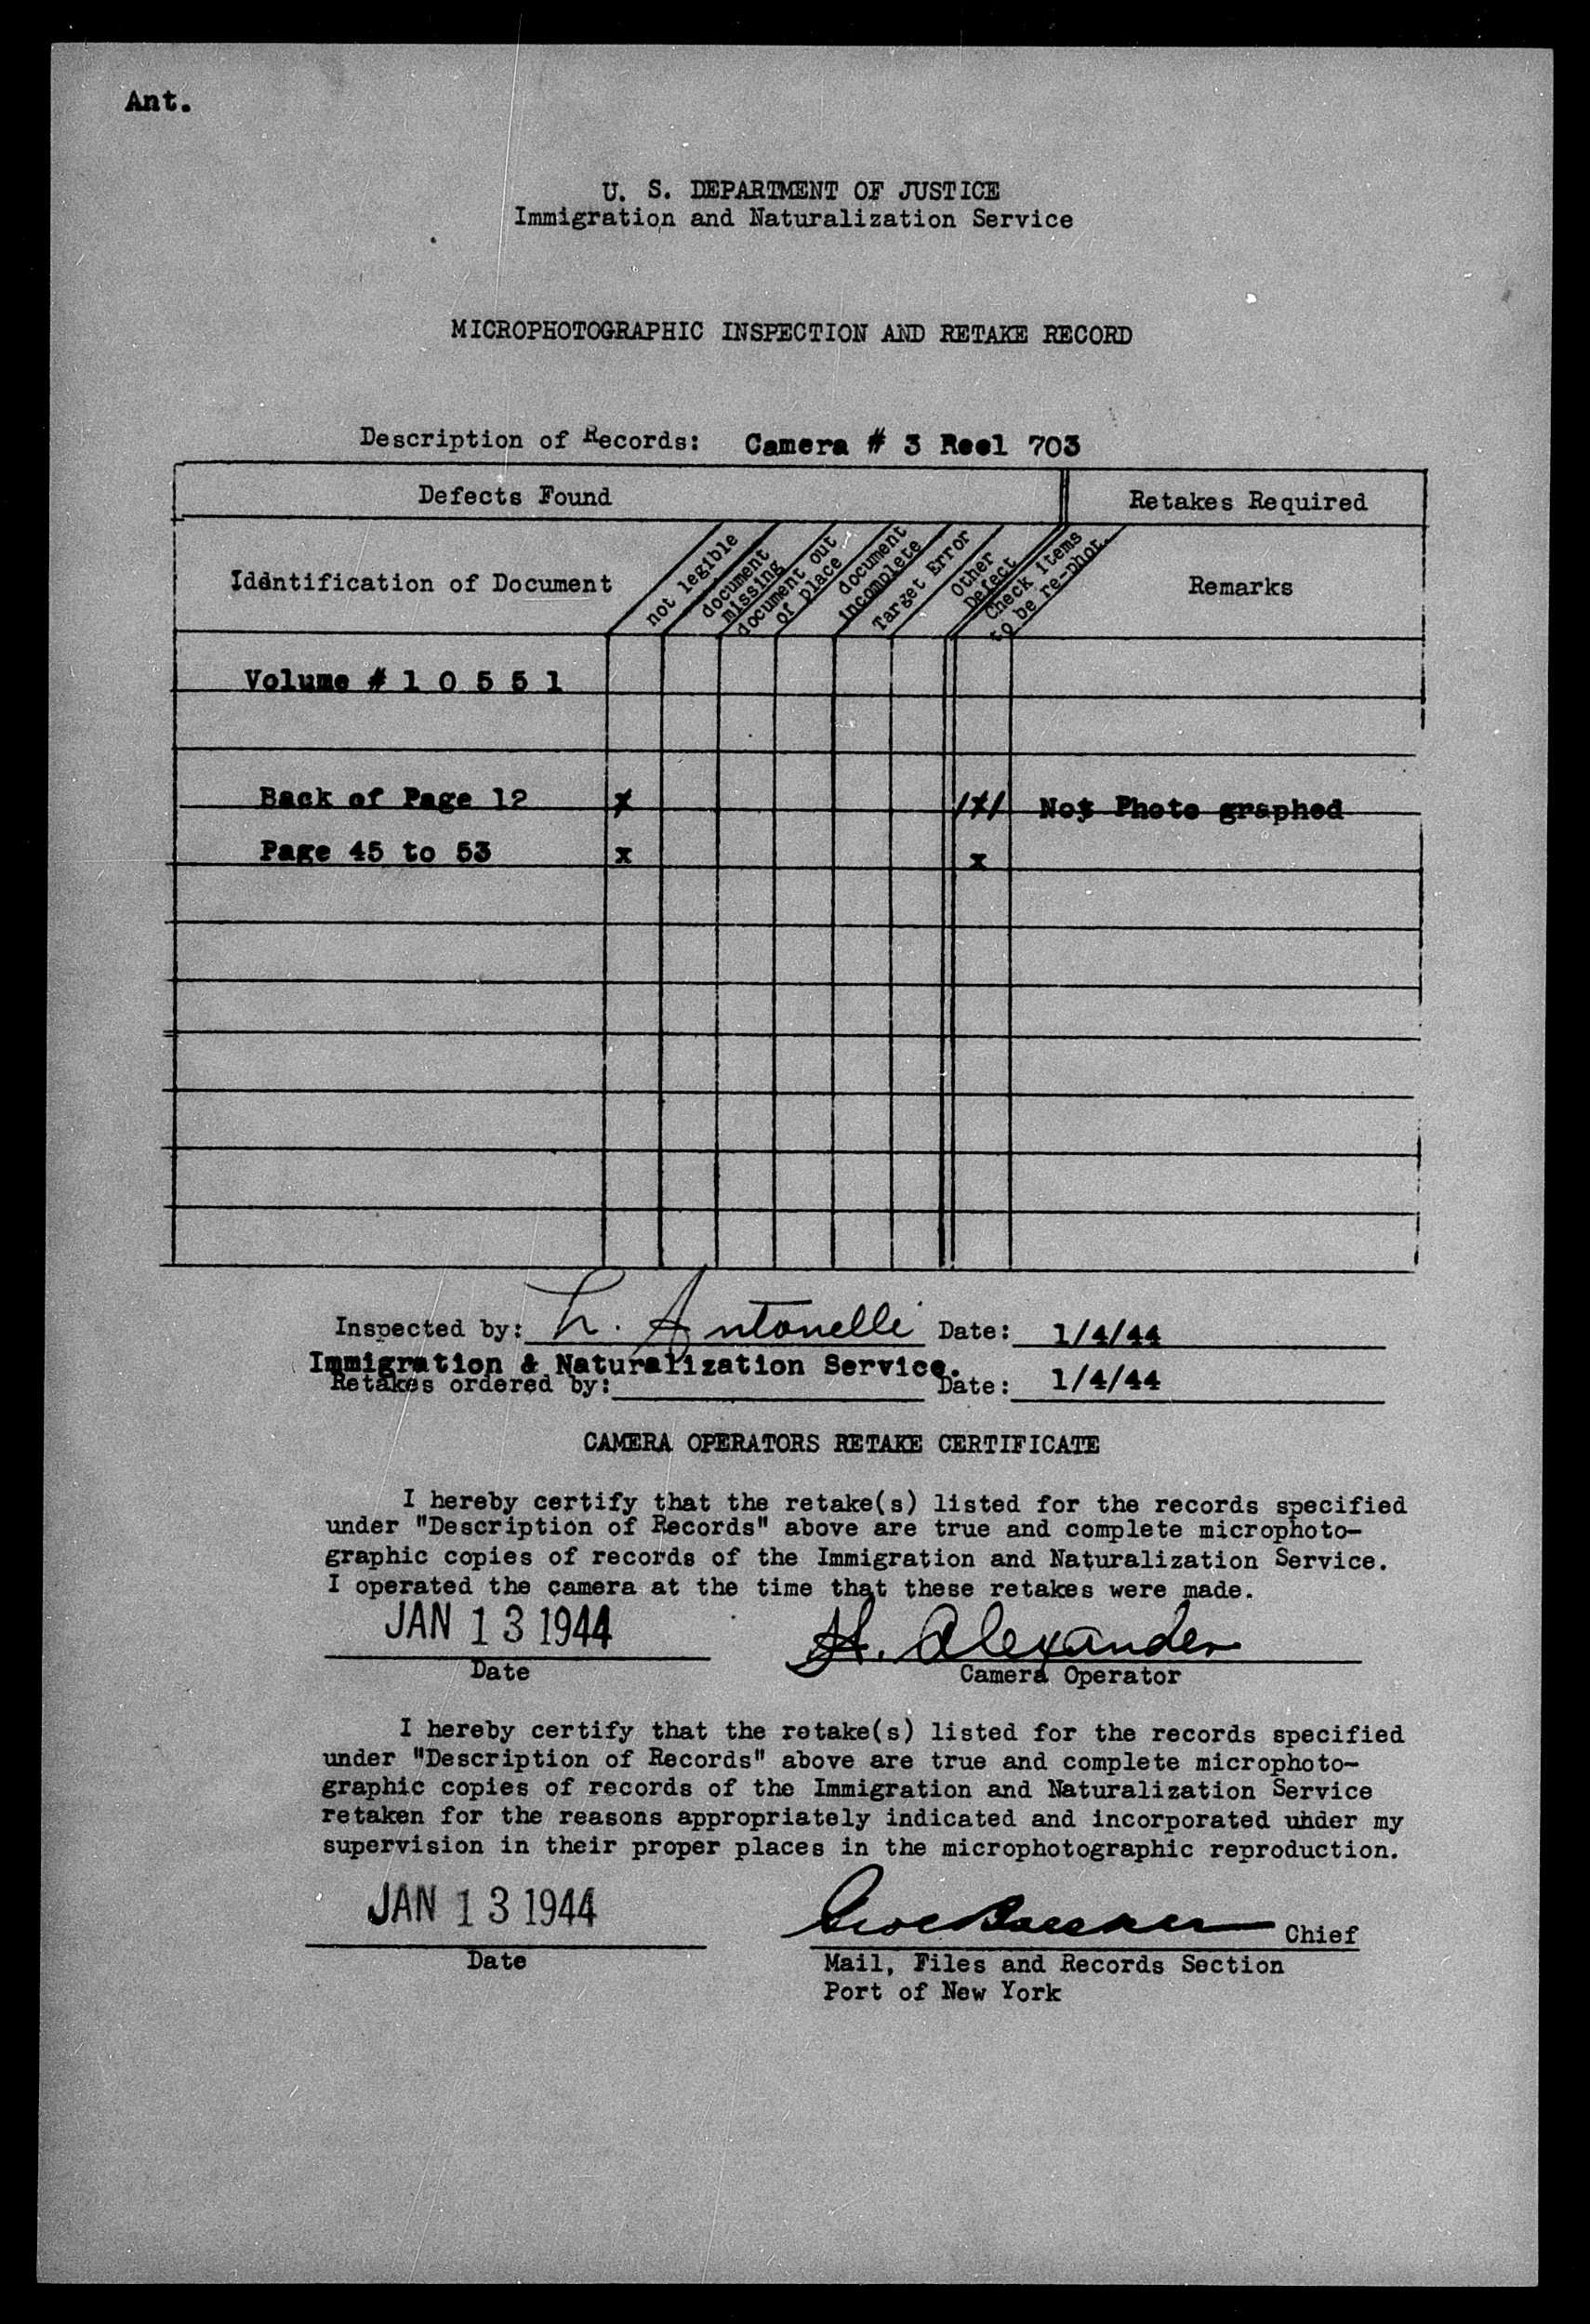 Ant.
U. S. DEPARTMENT OF JUSTICE
Immigration and Naturalization Service
MICROPHOTOGRAPHIC INSPECTION AND RETAKE RECORD
Description of Records: Camera # 3 Reel 703
Defects Found
Retakes Required
Identification of Document
not legible
document missing
document out of place
document incomplete
Target Error
Other Defect
Check items to be re-phot.
Remarks
Volume # 1 0 5 5 1
Back of Page 12 x /x/ Not Photo graphed
Page 45 to 53 x x
Inspected by: L. Antonelli Date: 1/4/44
Immigration & Naturalization Service.
Retakes ordered by: Date: 1/4/44
CAMERA OPERATORS RETAKE CERTIFICATE
I hereby certify that the retake(s) listed for the records specified
under "Description of Records" above are true and complete microphoto-
graphic copies of records of the Immigration and Naturalization Service.
I operated the camera at the time that these retakes were made.
JAN 13 1944 H. Alexander
Date Camera Operator
I hereby certify that the retake(s) listed for the records specified
under "Description of Records" above are true and complete microphoto-
graphic copies of records of the Immigration and Naturalization Service
retaken for the reasons appropriately indicated and incorporated under my
supervision in their proper places in the microphotographic reproduction.
JAN 13 1944
Chief
Date Mail, Files and Records Section
Port of New York